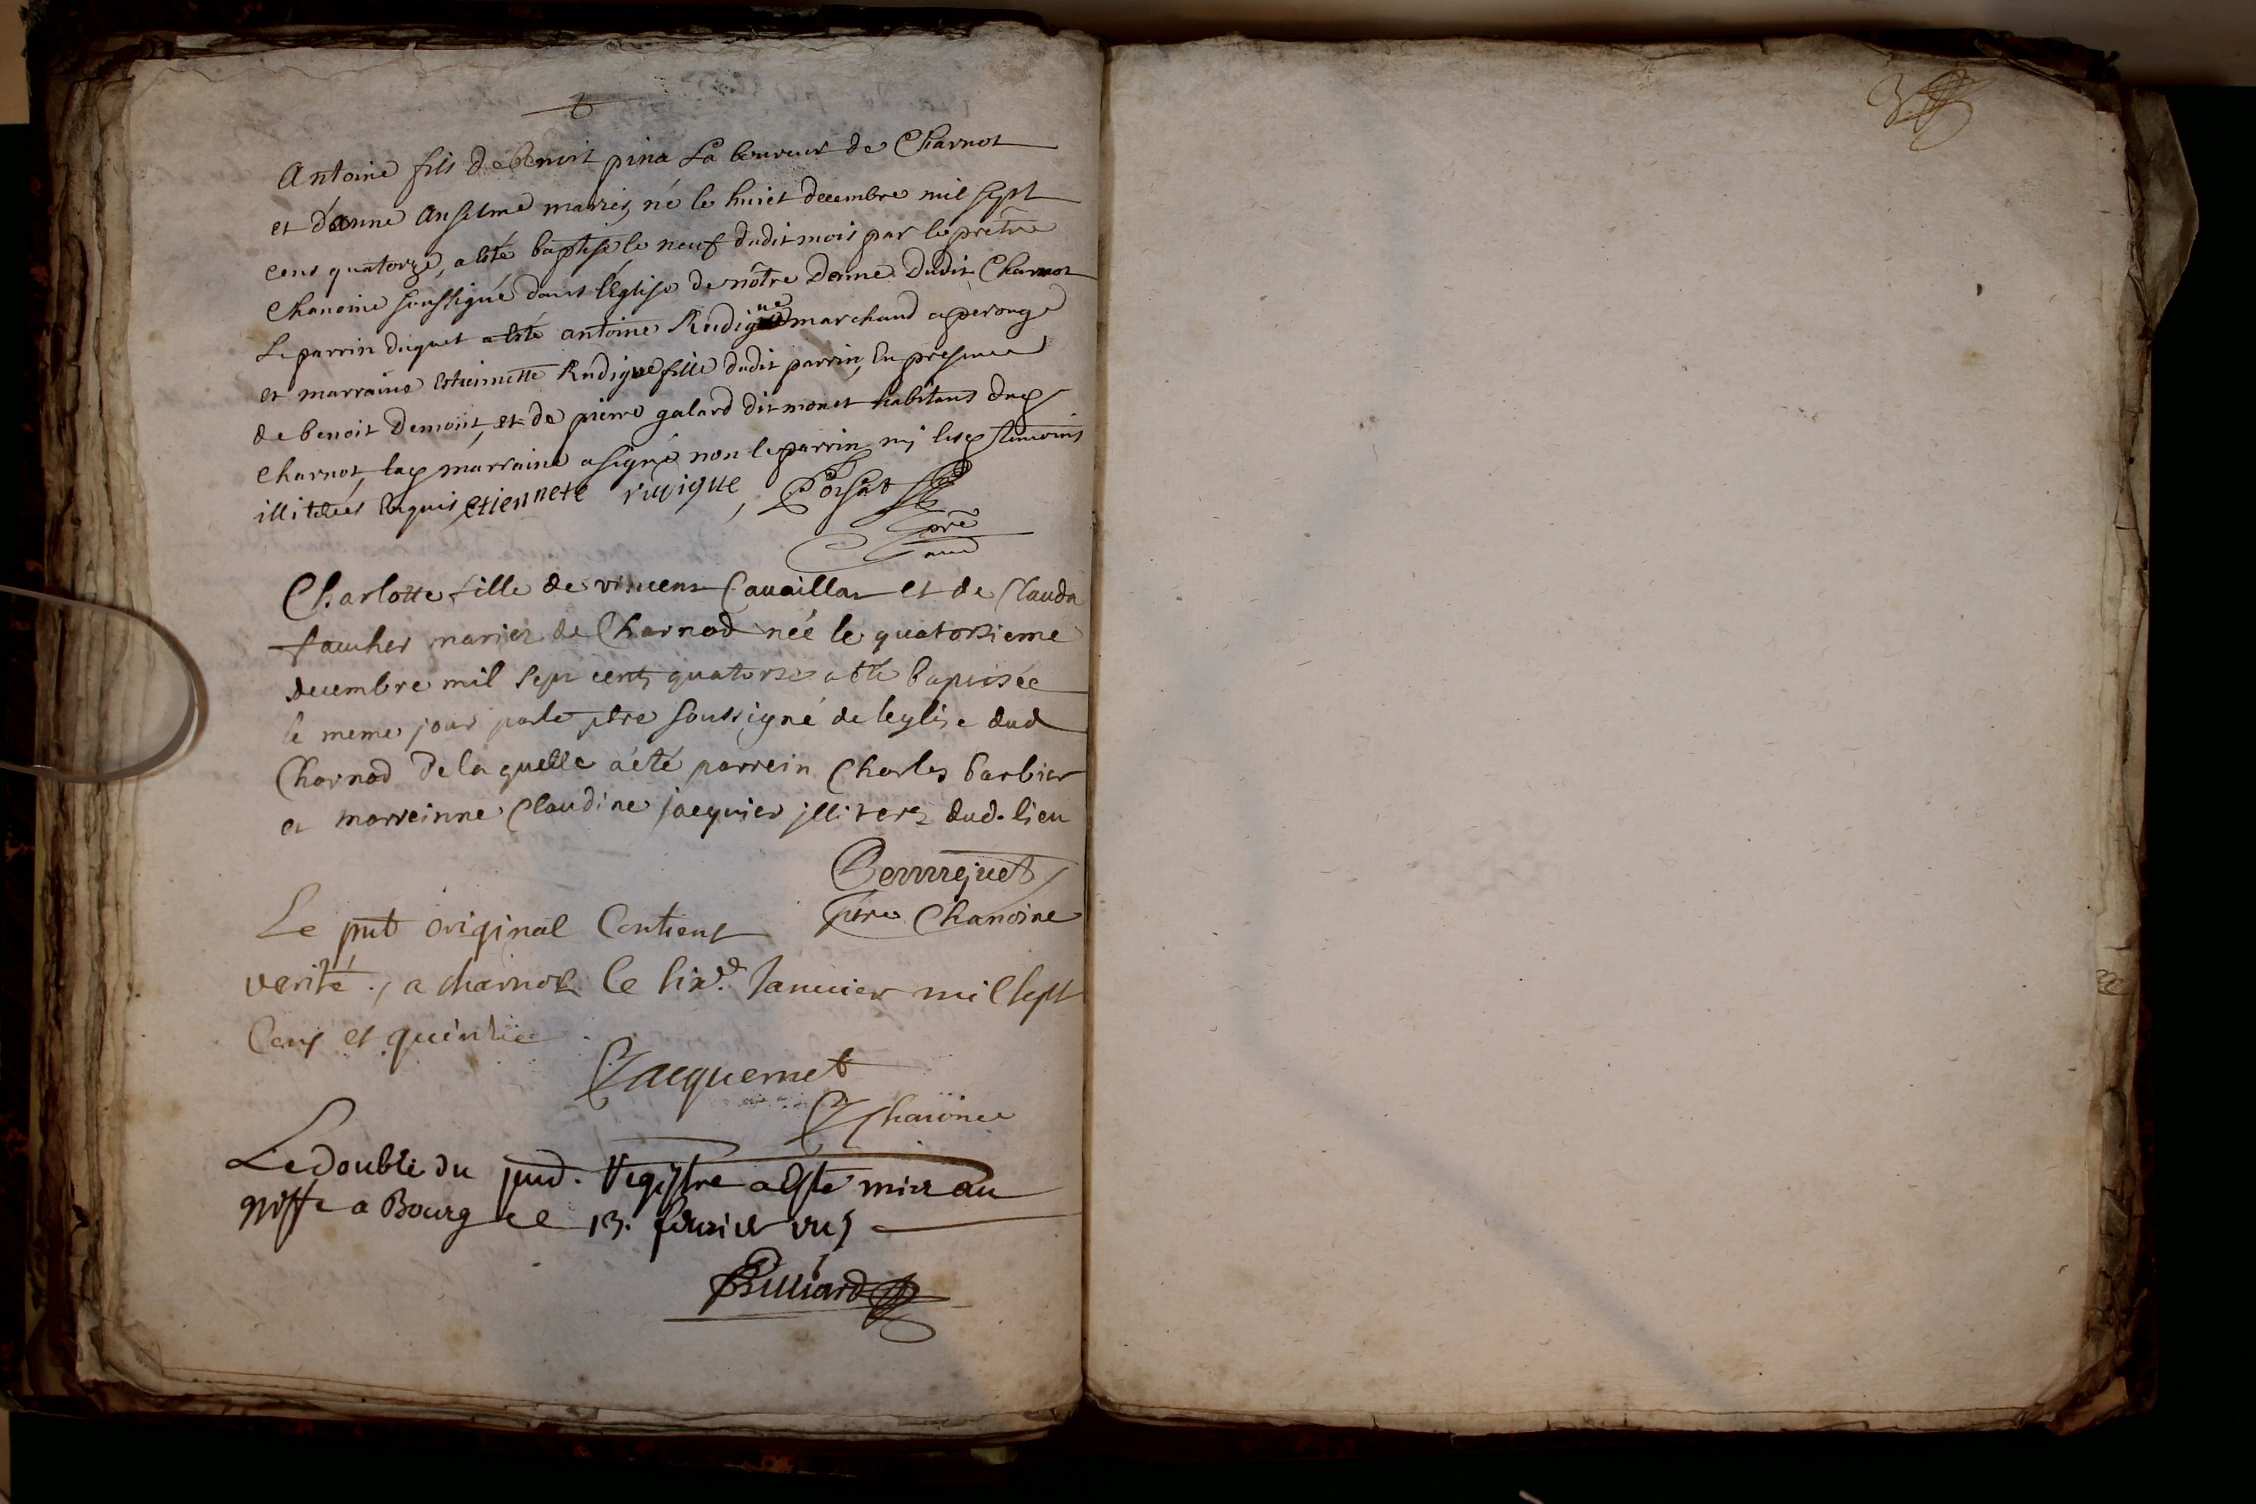 Antoine fils de benoit pina Laboureur de Charnot
et d'anne Anselme mariés, né le huict decembre mil sept
cens quatorze, a esté baptisé le neuf dudit mois par le prêtre
Chanoine soussigné dans l'Eglise de nôtre Dame dudit Charnot
Le parrin duquel a esté antoine Rudigue marchand a perouge
et marraine Estiennette Rudigue fille dudit parrin, En presence
de benoit Demont, et de pierre galard dit monet habitans dud
Charnot, lad marraine a signé non le parrin ny lesd temoins
illiterés Enquis etiennete rudigue,
pre
Charlotte fille de vincent Cavaillar et de Clauda
faucher mariez de Charnod née le quatorzieme
decembre mil sept cents quatorze a été baptisée
le meme jour par le ptre soussigné de leglise dud
Charnod De la quelle a été parrein Charles barbier
et marreinne Claudine jacquier jlliterez dud. lieu
ptre Chanoine
Le pnt original Contient
verité, a charnoz le six.e Januier mil sept
Cens et quinze
Jacquemet
Chanoine
Le double du pnd. Registre a Esté mis au
griffe a Bourg ce 13. feurier
Billiard